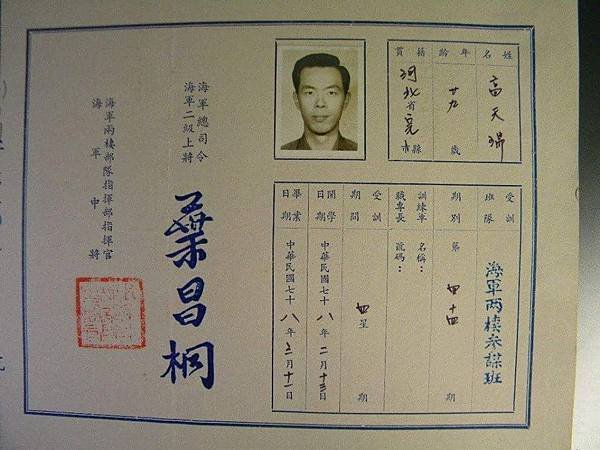 姓名
高天瑞
年齡
廿九歲
籍貫
河北省完縣市
受訓班隊
海軍两棲參謀班
期別
第四十四期
訓練軍職專長
名稱：
號碼：
受訓期間
四星期
開學日期
中華民國七十八年二月十三日
畢業日期
中華民國七十八年三月十一日
海軍總司令
海軍二級上將
葉昌桐
海軍兩棲部隊指揮部指揮官
海軍中將